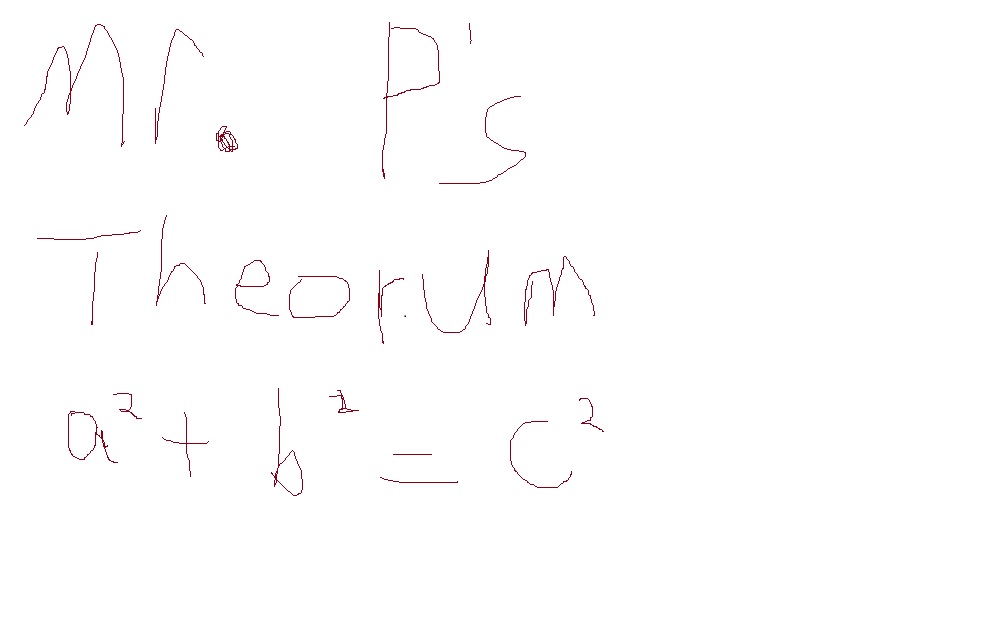 Mr. P's
Theorum
a² + b² = c²